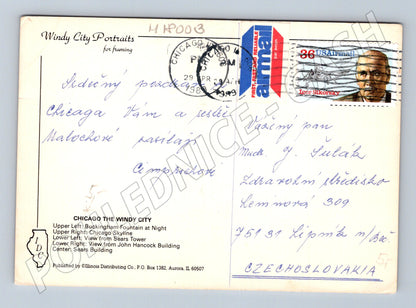 Windy City Portraits
for framing
HP003
CHICAGO
PM
29 APR
1989
airmail
36 USAirmail
Igor Sikorsky
Srdečný pozdrav z
Chicaga Vám a
zasílají
Vážený pan
Mudr. J. Šulák
Zdravotní středisko
309
751 31 Lipník n/Beč
CZECHOSLOVAKIA
CHICAGO THE WINDY CITY
Upper Left: Buckingham Fountain at Night
Upper Right: Chicago Skyline
Lower Left: View from Sears Tower
Lower Right: View from John Hancock Building
Center: Sears Building
IDC
Published by Illinois Distributing Co., P.O. Box 1382, Aurora, IL 60507
POHLEDNICE-CECH